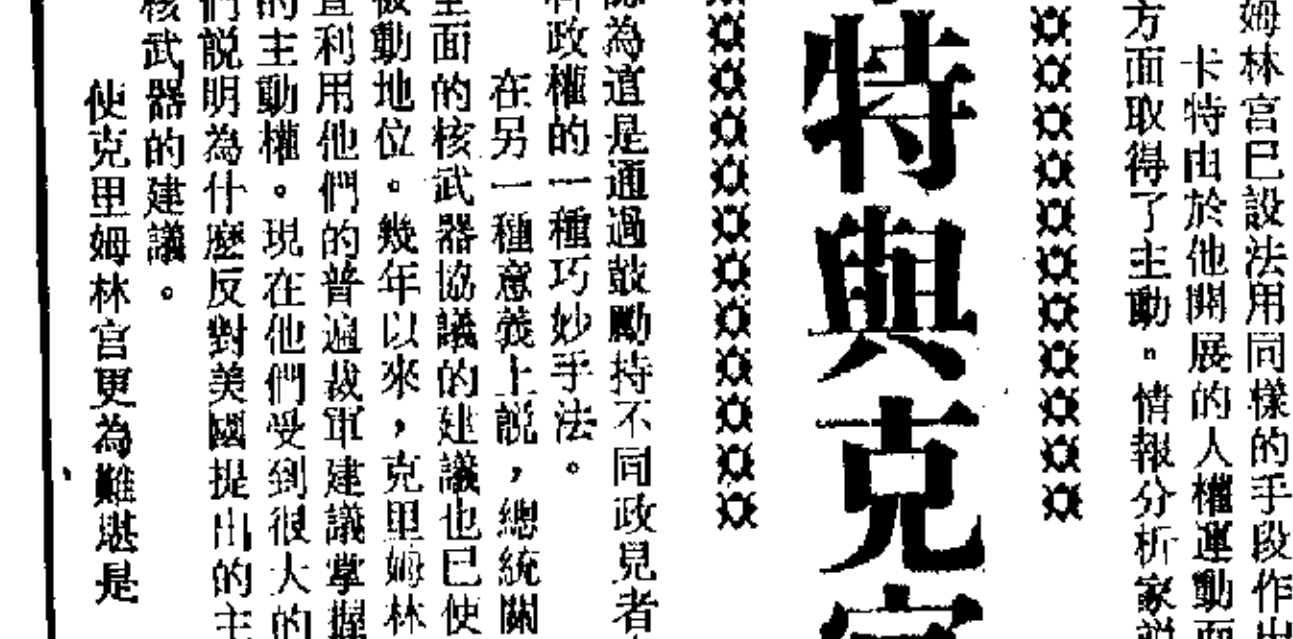 姆林宮已設法用同樣的手段作出
卡特由於他開展的人權運動而
方面取得了主動。情報分析家説
特與克宮
認為這是通過鼓勵持不同政見者
政權的一種巧妙手法。
在另一種意義上說，總統關
全面的核武器協議的建議也已使
被動地位。幾年以來，克里姆林
直利用他們的普遍裁軍建議掌握
的主動權。現在他們受到很大的
們說明為什麼反對美國提出的主
核武器的建議。
使克里姆林宮更為難堪是